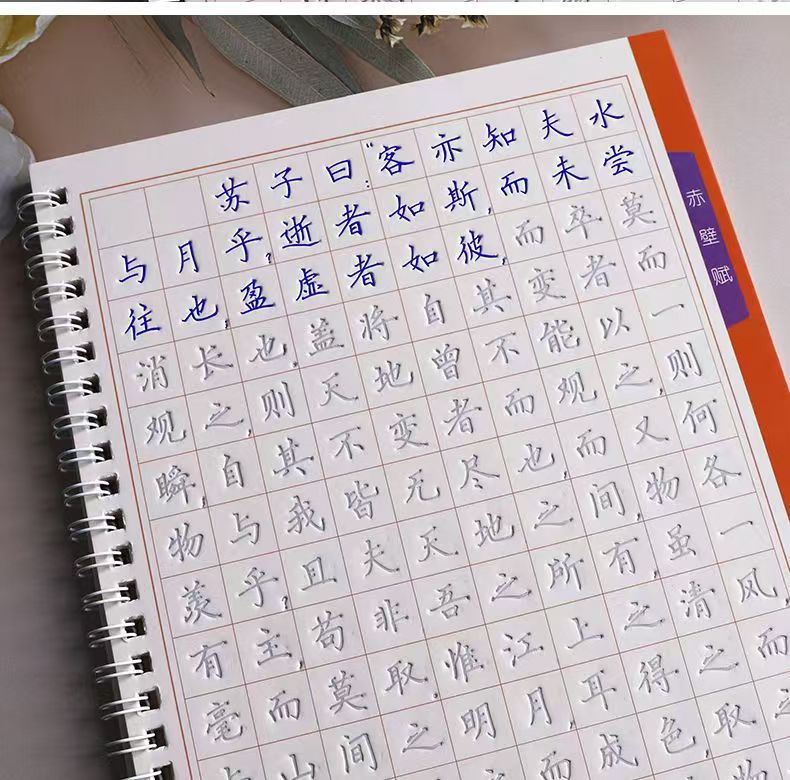 苏子曰:“客亦知夫水
与月乎?逝者如斯,而未尝
往也;盈虚者如彼,而卒莫
消长也。盖将自其变者而
观之,则天地曾不能以一
瞬;自其不变者而观之,则
物与我皆无尽也,而又何
羡乎?且夫天地之间,物各
有主,苟非吾之所有,虽一
毫而莫取。惟江上之清风,
与山间之明月,耳得之而
之而成色,取之
物
赤壁赋